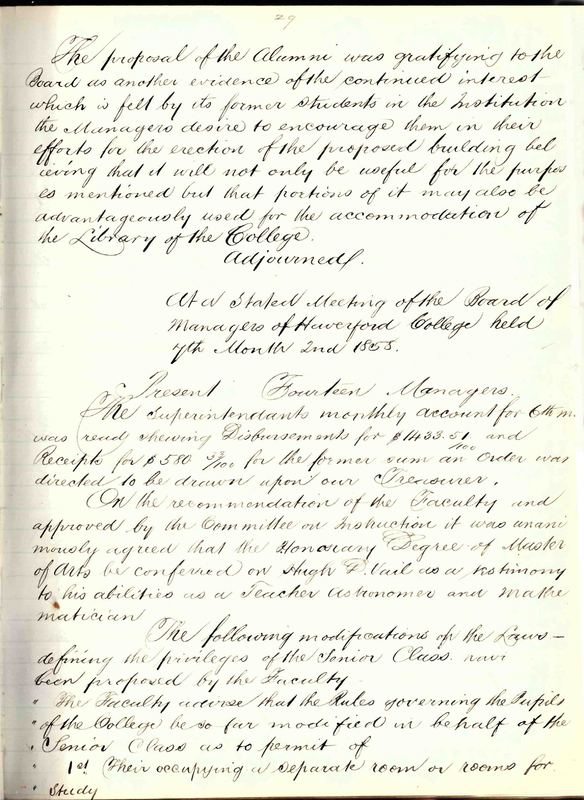 29
The proposal of the Alumni was gratifying to the
Board as another evidence of the continued interest
which is felt by its former students in the Institution
the Managers desire to encourage them in their
efforts for the erection of the proposed building bel
ieving that it will not only be useful for the purpos
es mentioned but that portions of it may also be
advantageously used for the accommodation of
the Library of the College.
Adjourned.
At a Stated Meeting of the Board of
Managers of Haverford College held
7th Month 2nd 1858.
Present Fourteen Managers.
The Superintendants monthly account for 6th m.
was read shewing Disbursements for $1433.51/100 and
Receipts for $580 /100 for the former sum an order was
directed to be drawn upon our Treasurer.
On the recommendation of the Faculty and
approved by the Committee on Instruction it was unani
mously agreed that the Honorary Degree of Master
of Arts be conferred on Hugh D. Vail as a testimony
to his abilities as a Teacher Astronomer and Mathe
matician
The following modifications of the Laws-
defining the privileges of the Senior Class. have
been proposed by the Faculty
" The Faculty advise that the Rules governing the Pupils
" of the College be so far modified in behalf of the
" Senior Class as to permit of
" 1st Their occupying a separate room or rooms for
" Study